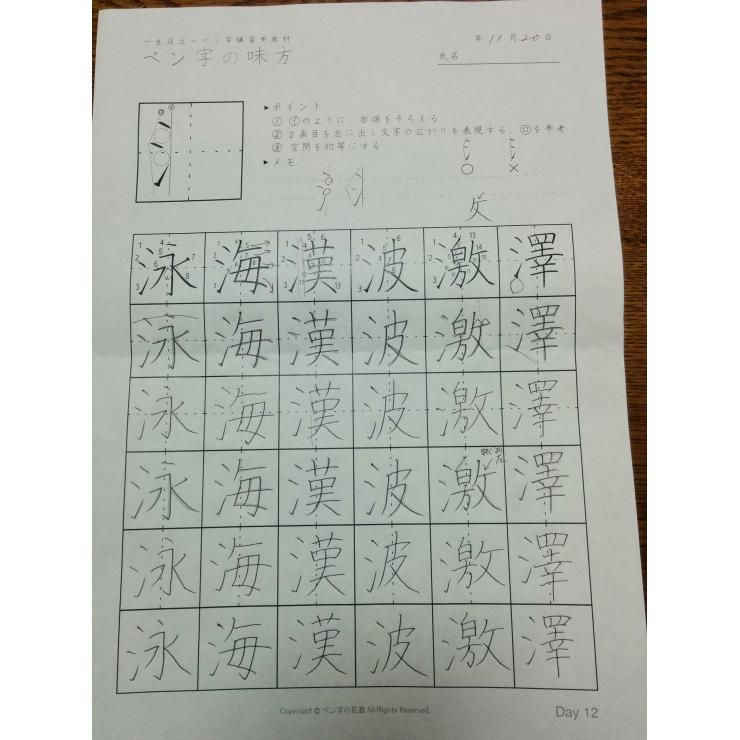 一生役立つペン字練習用教材
ペン字の味方
年 11 月 20 日
氏名
▶ポイント
① ㋑のように、右端をそろえる
② 2画目を左に出し文字の広がりを表現する、㋺を参考
③ 空間を均等にする
▶メモ
○ ×
攵
泳 海 漢 波 激 澤
泳 海 漢 波 激 澤
泳 海 漢 波 激 澤
泳 海 漢 波 激 澤
泳 海 漢 波 激 澤
泳 海 漢 波 激 澤
Copyright © ペン字の花道 All Rights Reserved.
Day 12